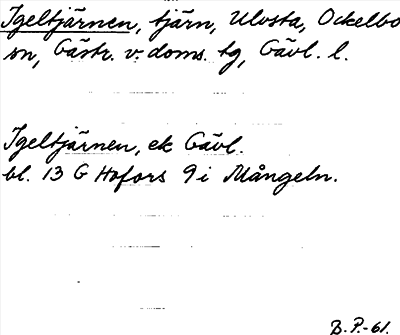 Igeltjärnen, tjärn, Ulvsta, Ockelbo
sn, Gästr. v. doms. tg, Gävl. l.
Igeltjärnen, ek Gävl.
bl. 13 G Hofors 9 i Mångeln.
B.P.-61.